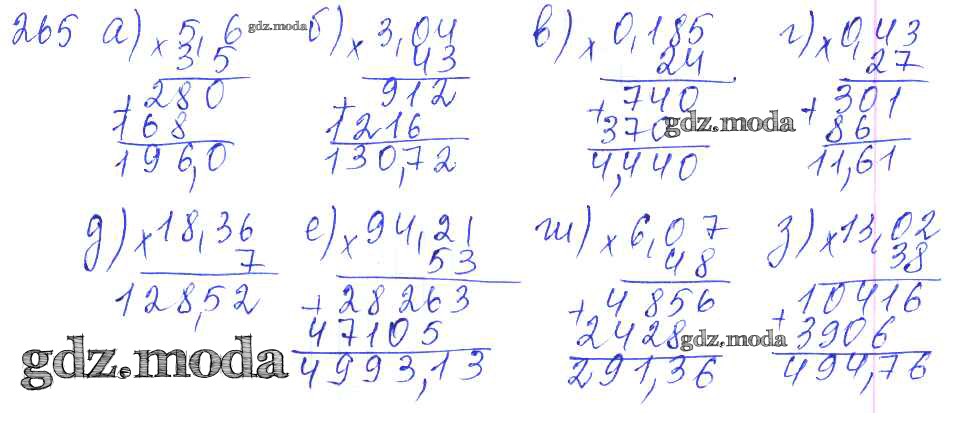 265 а) × 5,6 gdz.moda б) × 3,04 в) × 0,185 г) × 0,43
35 43 24 27
+ 280 + 912 + 740 + 301
168 1216 370 gdz.moda 86
196,0 130,72 4,440 11,61
д) × 18,36 е) × 94,21 ж) × 6,07 з) × 13,02
7 53 48 38
128,52 + 28263 + 4856 + 10416
47105 2428 gdz.moda 3906
gdz.moda 4993,13 291,36 494,76